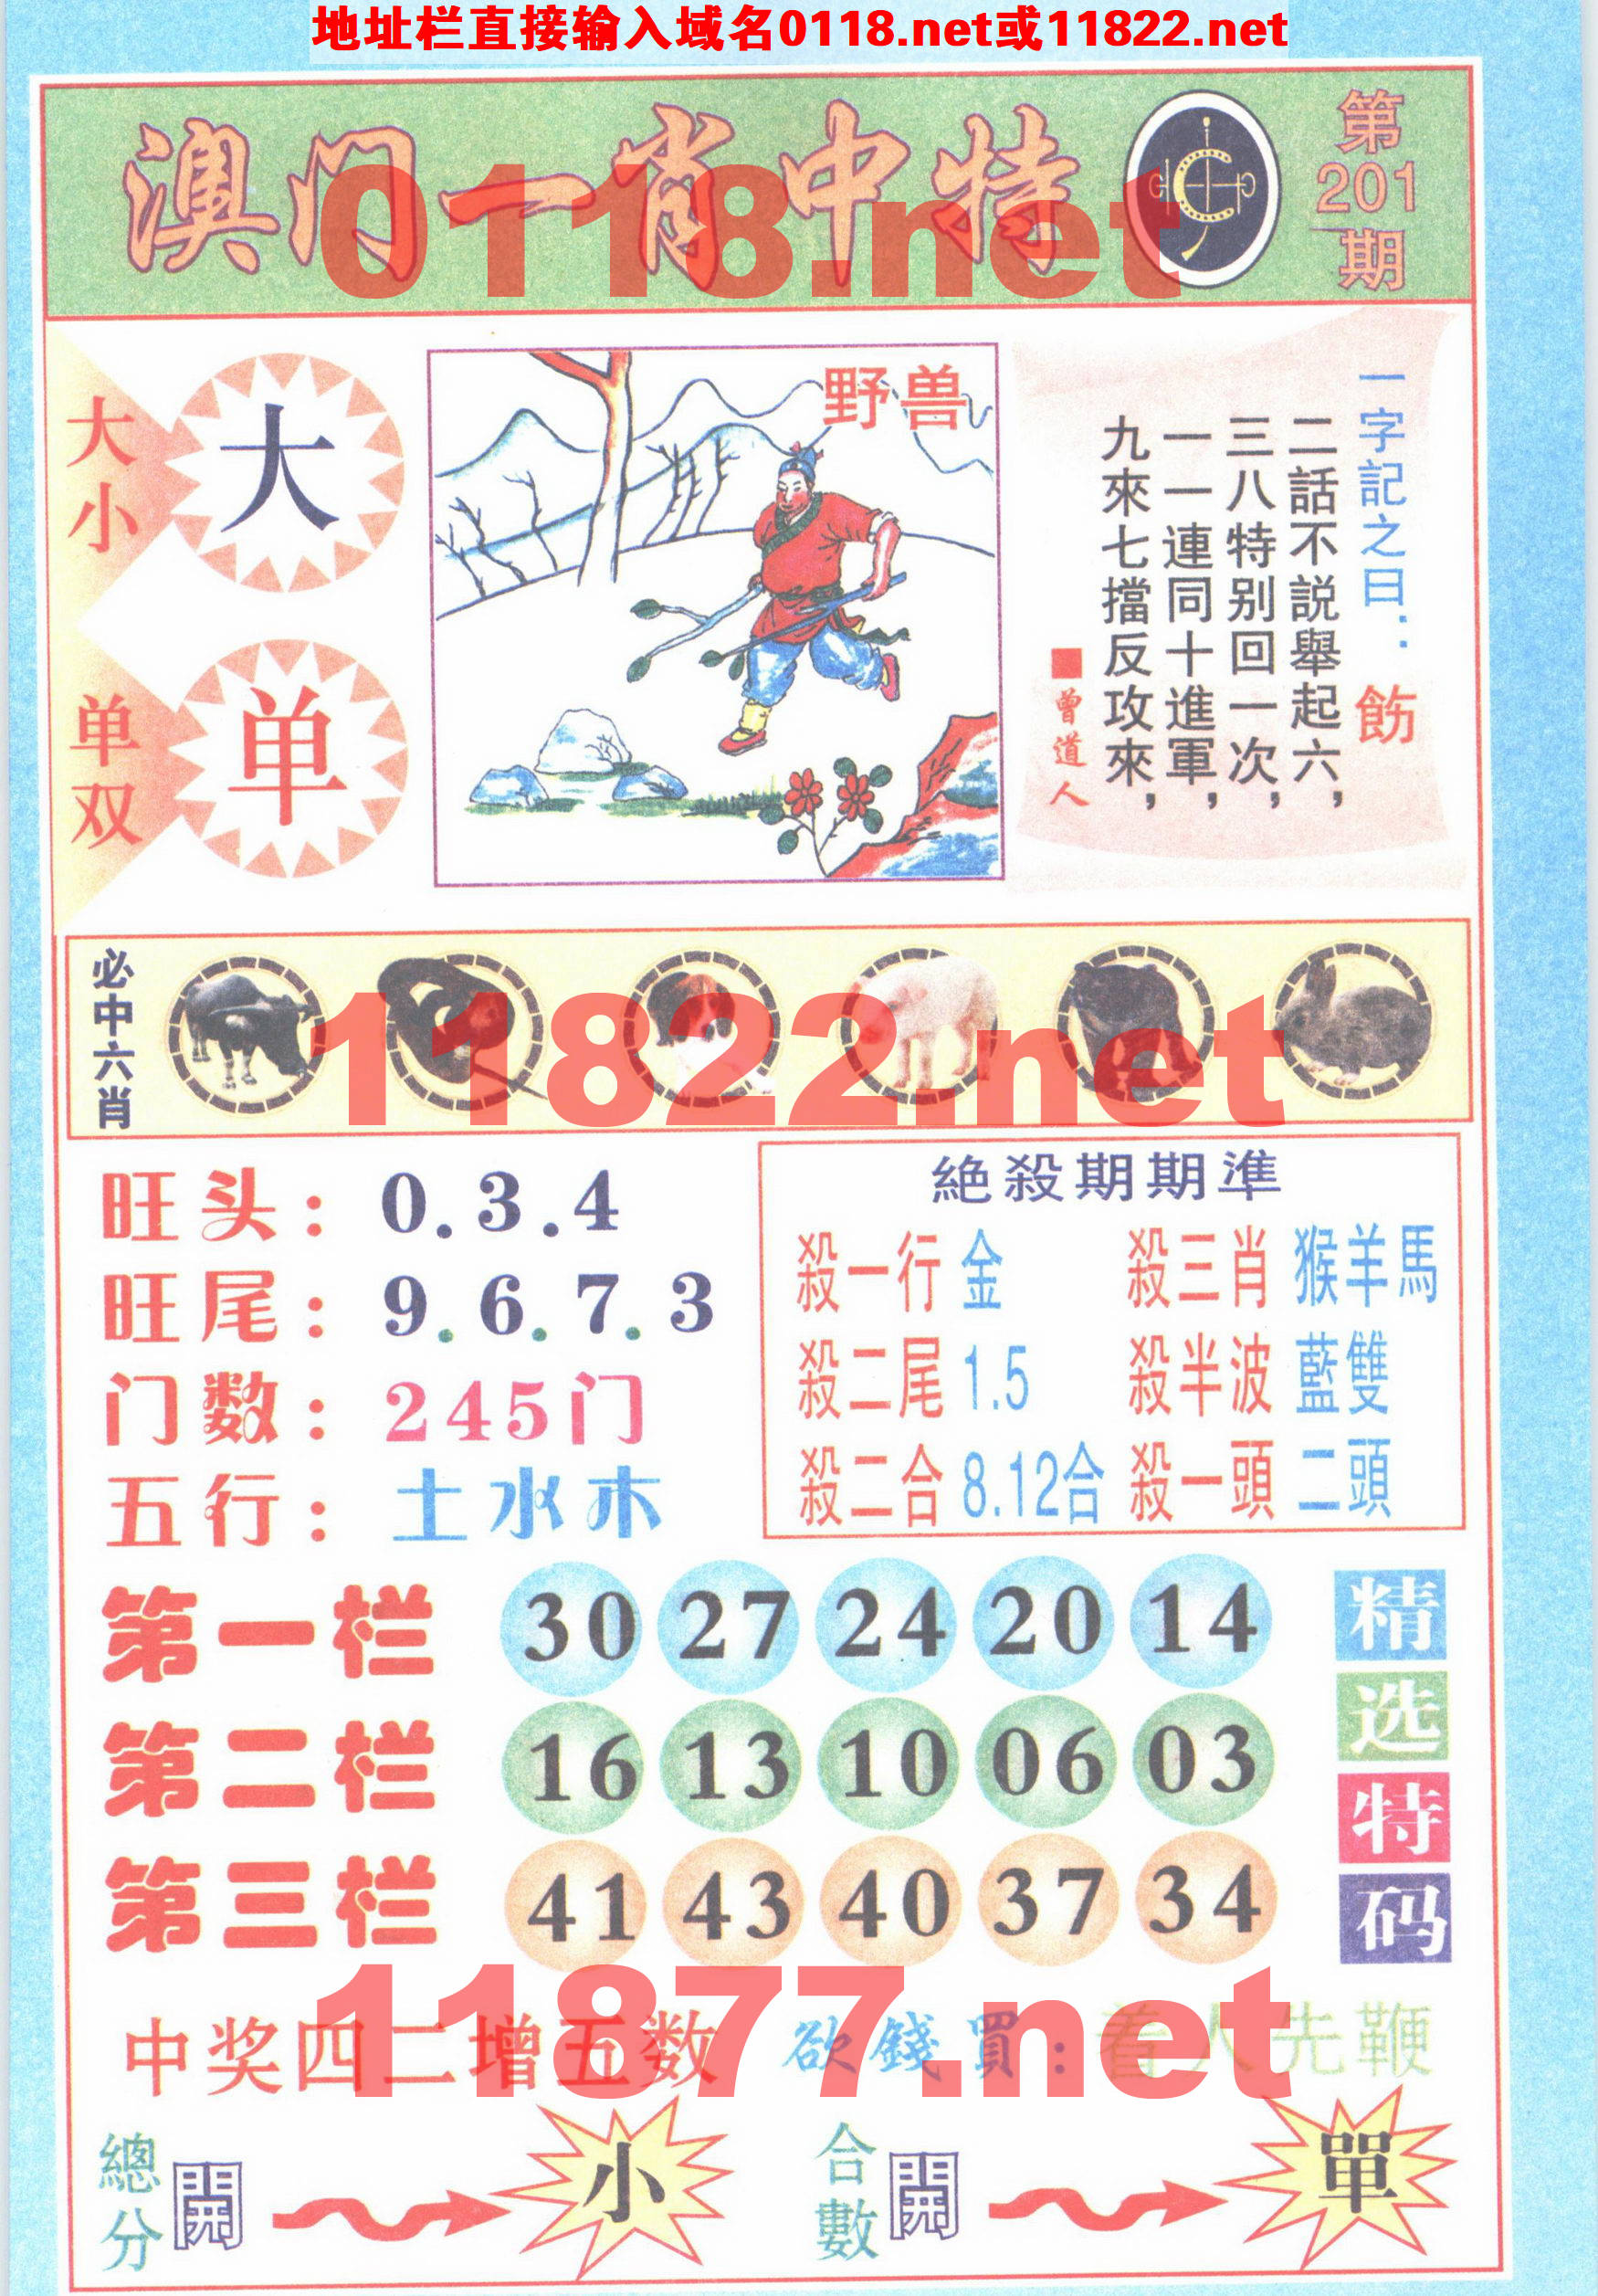 地址栏直接输入域名0118.net或11822.net
澳门一肖中特
第201期
0118.net
大小
大
单双
单
野兽
一字記之曰：飭
二話不説舉起六，
三八特别回一次，
一一連同十進軍，
九來七擋反攻來，
■曾道人
必中六肖
11822.net
旺头：0.3.4
旺尾：9.6.7.3
门数：245门
五行：土水木
絶殺期期準
殺一行 金 殺三肖 猴羊馬
殺二尾 1.5 殺半波 藍雙
殺二合 8.12合 殺一頭 二頭
第一栏 30 27 24 20 14
第二栏 16 13 10 06 03
第三栏 41 43 40 37 34
精选特码
11877.net
中奖四二增五数 欲錢買：着人先鞭
總分 開 小 合數 開 單